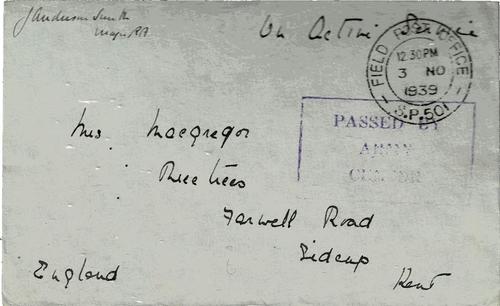 J Anderson Smith
Major RA
On Active Service
FIELD POST OFFICE
12.30PM
3 NO
1939
S.P.501
PASSED BY
ARMY
CENSOR
Mrs. Macgregor
Farwell Road
Sidcup
Kent
England